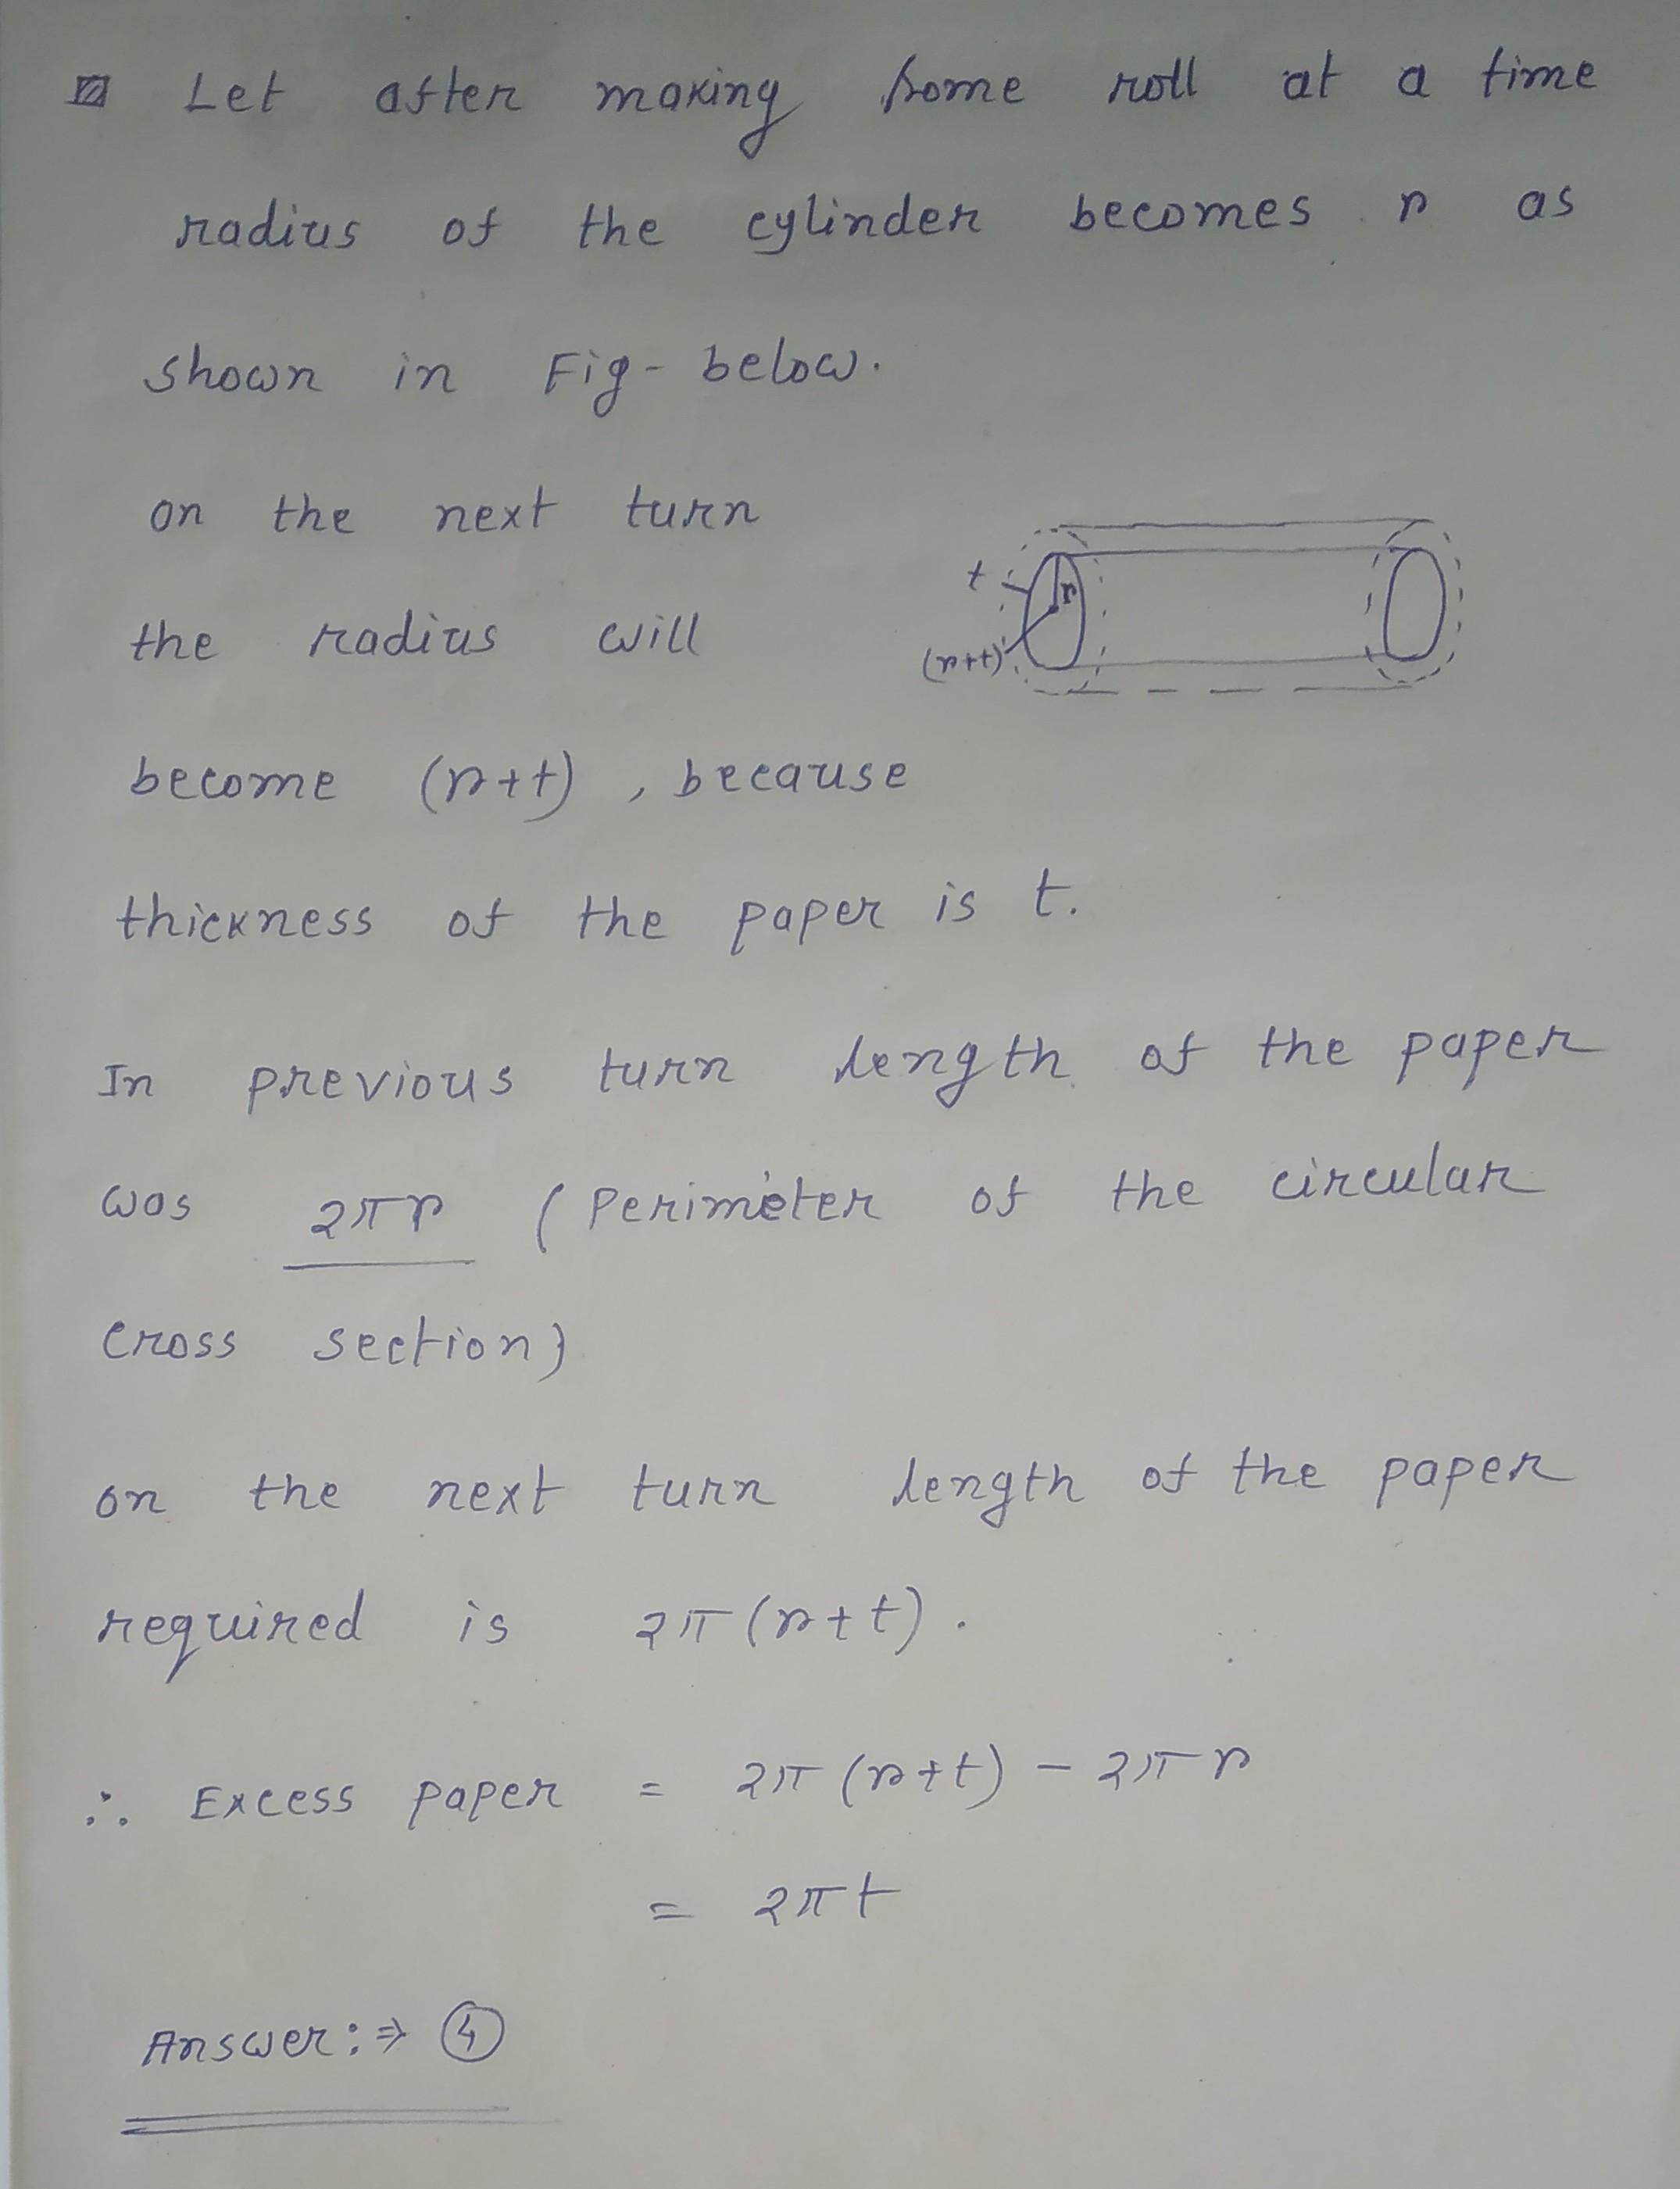 Let after making some roll at a time
radius of the cylinder becomes r as
shown in Fig- below.
on the next turn
the radius will
t
r
(r+t)
become (r+t), because
thickness of the paper is t.
In previous turn length of the paper
was 2πr (Perimeter of the circular
cross section)
on the next turn length of the paper
required is 2π(r+t).
∴ Excess paper = 2π(r+t) - 2πr
= 2πt
Answer:⇒ ④